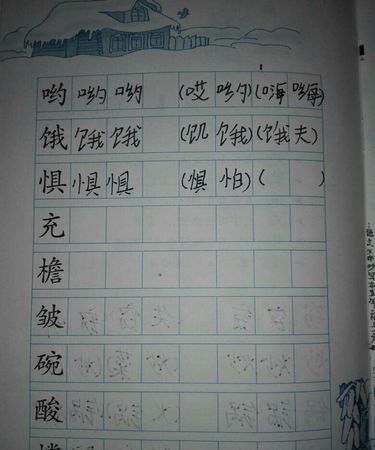 哟 哟 哟 (哎 哟)(嗨
饿 饿 饿 (饥 饿)(饿 夫)
惧 惧 惧 (惧 怕)( )
充
檐
皱
碗
酸